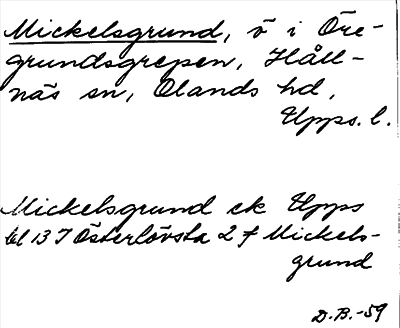 Mickelsgrund, ö i Öre-
grundsgrepen, Håll-
näs sn, Olands hd,
Upps. l.
Mickelsgrund ek Upps
bl 13 7 Österlövsta 2 f Mickels-
grund
D.B.-59